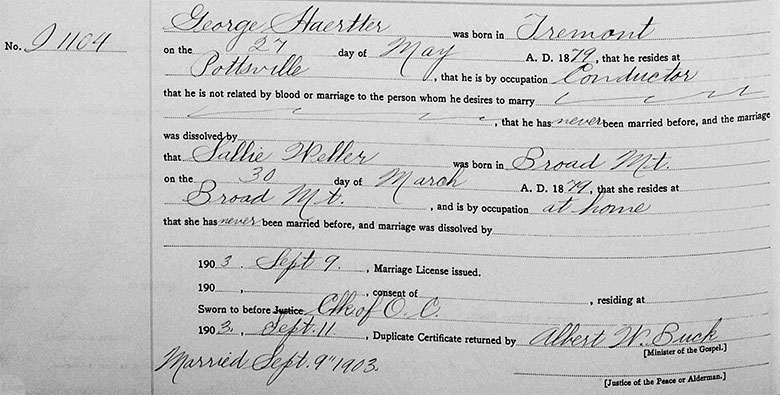 George Haertter was born in Tremont
No. J 1104
on the 27 day of May A. D. 1879, that he resides at
Pottsville, that he is by occupation Conductor
that he is not related by blood or marriage to the person whom he desires to marry
, that he has never been married before, and the marriage
was dissolved by
that Sallie Weller was born in Broad Mt.
on the 30 day of March A. D. 1879, that she resides at
Broad Mt., and is by occupation at home
that she has never been married before, and marriage was dissolved by
1903, Sept 9, Marriage License issued.
190 , , consent of , residing at
Sworn to before Justice Clk of O. C.
1903, Sept. 11, Duplicate Certificate returned by Albert W. Buck
[Minister of the Gospel.]
Married Sept. 9" 1903.
[Justice of the Peace or Alderman.]